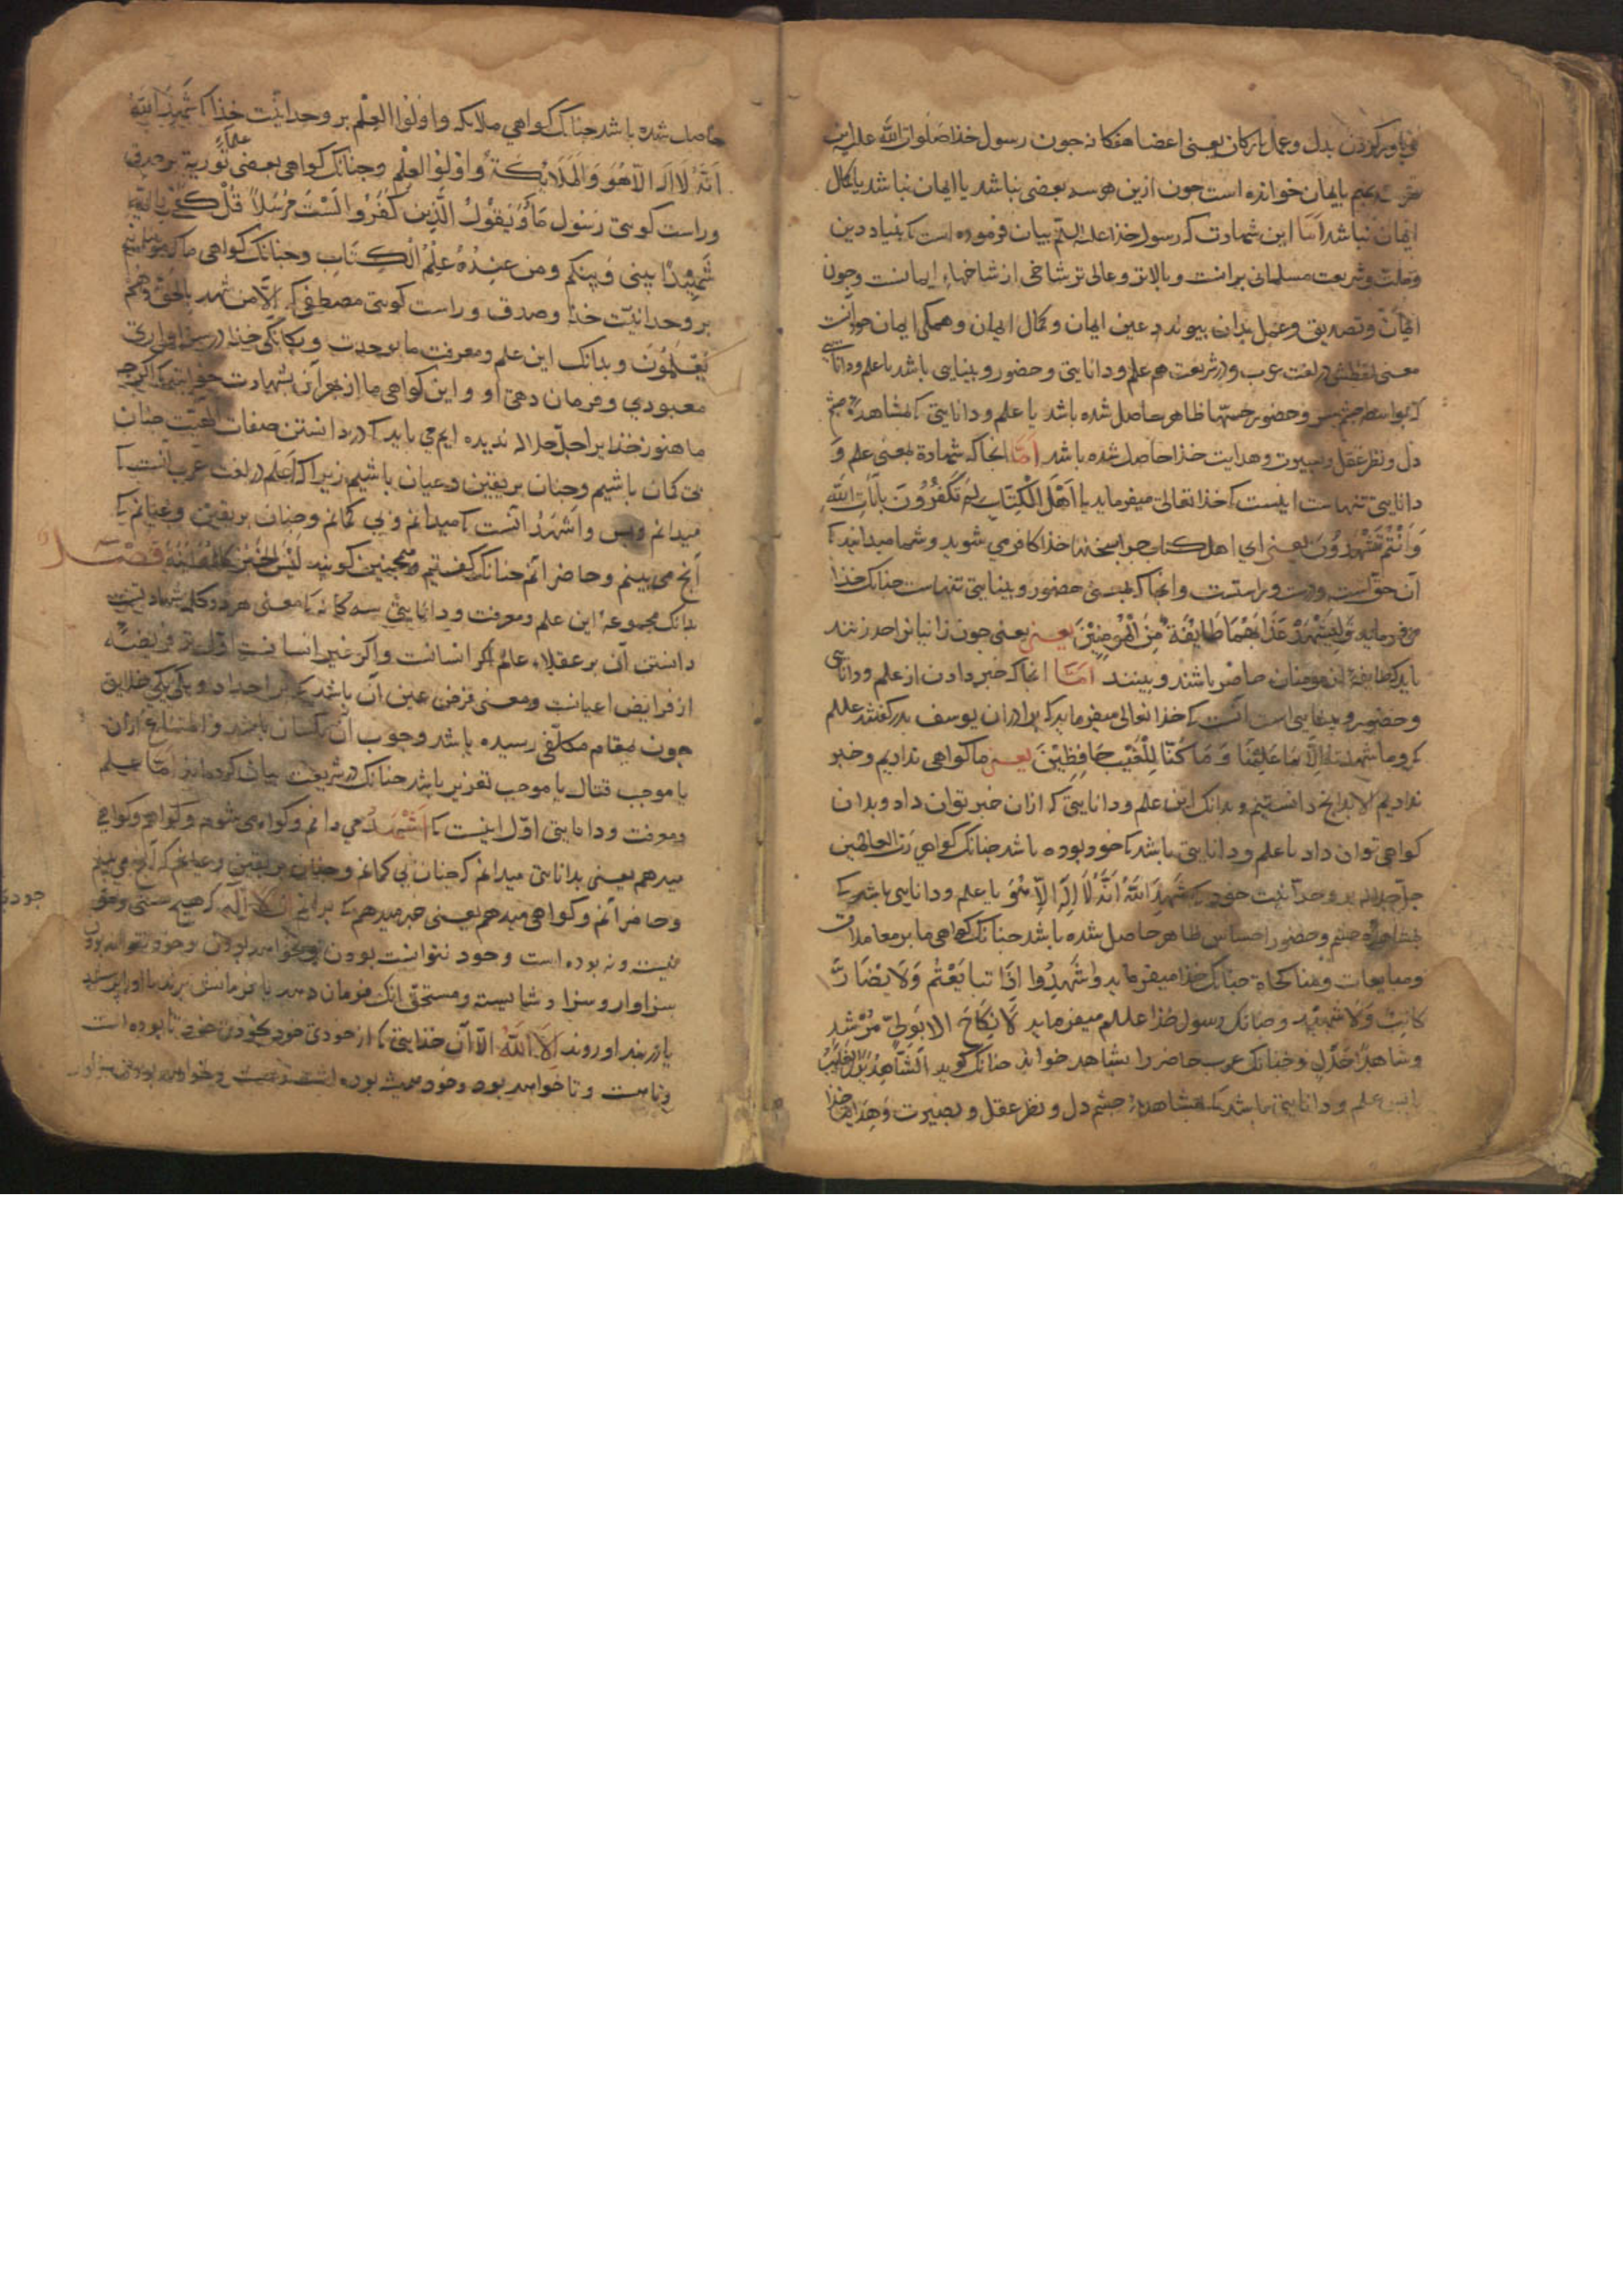 و باور کردن بدل و عمل بارکان یعنی اعضا هفکانه جون رسول خذا صلوات الله علیه این
هر سه بهم بایمان خوانده است جون ازین هر سه بعضی نباشد یا ایمان نباشد یا کمال
ایمان نباشد اما این شهادت که رسول خذا علیه السلم بیان فرموده است کی بنیاد دین
وملت وشریعت مسلمانی برانست و بالاتر و عالی تر شاخی از شاخهاء ایمانست وجون
ایمان وتصدیق وعمل بدان بیوندد عین ایمان و کمال ایمان وهمکی ایمان خود آنست
معنی لفظش در لغت عرب ودر شریعت هم علم ودانایی وحضور و بینایی باشد یا علم ودانایی
کی بواسطه جشم سر وحضور جسمها ظاهر حاصل شده باشد یا علم ودانایی کی بمشاهده جشم
دل ونظر عقل وبصیرت وهدایت خذا حاصل شده باشد اما انجا که شهادة بمعنی علم و
دانایی تنهاست اینست کی خذا تعالی میفرماید یا اهل الکتاب لم تکفرون بآیات الله
وانتم تشهدون یعنی ای اهل کتاب جرا بسخن خذا کافر می شوید وشما میدانید کی
آن حق است ودرست و راستست وانجا که بمعنی حضور وبینایی تنهاست جنانک خذا
می فرماید ولیشهد عذابهما طایفة من المؤمنین یعنی یعنی جون زانیانرا حد زنند
باید که طایفه از مومنان حاضر باشند و ببینند اما انجا که خبر دادن از علم ودانایی
وحضور و بینایی است آنست کی خذا تعالی میفرماید که برادران یوسف بدر کفتند
که وما شهدنا الا بما علمنا وما کنا للغیب حافظین یعنی ما کواهی ندادیم وخبر
ندادیم الا بدانج دانستیم وبدانک این علم ودانایی که ازان خبر توان داد وبدان
کواهی توان داد یا علم ودانایی باشد کی خود بوده باشد جنانک کواهی رب العالمین
جل جلاله بر وحدانیت خود کی شهد الله انه لا اله الا هو یا علم ودانایی باشد کی
بمشاهده جشم وحضور احساس ظاهر حاصل شده باشد جنانک کواهی ما بر معاملات
ومبایعات ومناکحات جنانک خذا میفرماید واشهدوا اذا تبایعتم ولا یضار
کاتب ولا شهید وجنانک رسول خذا علیه السلم میفرماید لا نکاح الا بولی مرشد
وشاهدی عدل وجنانک عرب حاضر را شاهد خواند جنانک کوید الشاهد یری
یا این علم ودانایی باشد کی بمشاهده جشم دل ونظر عقل وبصیرت وهدایت خذا
حاصل شده باشد جنانک کواهی ملایکه واولوا العلم بر وحدانیت خذا کی شهد الله
انه لا اله الا هو والملایکة واولوا العلم وجنانک کواهی بعضی علماء توریة بر صدق
وراست کویی رسول ما ویقول الذین کفروا لست مرسلا قل کفی بالله
شهیدا بینی وبینکم ومن عنده علم الکتاب وجنانک کواهی ما که مومنانیم
بر وحدانیت خذا وصدق وراست کویی مصطفی که الا من شهد بالحق وهم
یعلمون وبدانک این علم ومعرفت ما بوحدت ویکانکی خذا در سزاواری
معبودی وفرمان دهی او واین کواهی ما از بهر آن شهادت خوانند کی اکرجه
ما هنوز خذا برا جل جلاله ندیده ایم می باید کی در دانستن صفات الهیت جنان
بی کمان باشیم وجنان بریقین وعیان باشیم زیرا که اعلم در لغت عرب آنست کی
میدانم وبس واشهد آنست کی میدانم وبی کمانم وجنان بریقین وعیانم کی
آنج می بینم وحاضر آنم جنانک کفتیم وهمجنین کویند لیس الخبر کالمعاینة فصل
بدانک مجموعه این علم ومعرفت ودانایی سه کانه کی معنی هر دو کلمه شهادتست
دانستن آن بر عقلاء عالم اکر انسانست واکر غیر انسانست اول تر فریضه
از فرایض اعیانست ومعنی فرض عین آن باشد کی بر آحاد ویکی یکی خلایق
جون بمقام مکلفی رسیده باشد وجوب آن یکسان باشد وامتناع ازان
یا موجب قتال یا موجب تعزیر باشد جنانک در شریعت بیان کرده اند اما علم
ومعرفت ودانایی اول اینست کی اشهد می دانم وکواه می شوم وکواهم وکواهی
میدهم یعنی بدانایی میدانم که جنان بی کمانم وجنان بریقین وعیانم که آنج می بینم
وحاضر آنم وکواهی میدهم یعنی خبر میدهم کی برانم ان لا اله که هیج هستی
نیست ونه بوده است وخود نتوانست بودن ونخواهد بودن وخود نتواند بودن
سزاوار وسزا وشایسته ومستحق آنک فرمان دهد یا فرمانش برند یا او را پرستند
یا در بند او روند الا الله الا آن خذایی کی از خودی خود بخودی خود تا بوده است
وتا هست وتا خواهد بود وخود همیشه بوده است وهست وخواهد بودن سزاوار
جودی